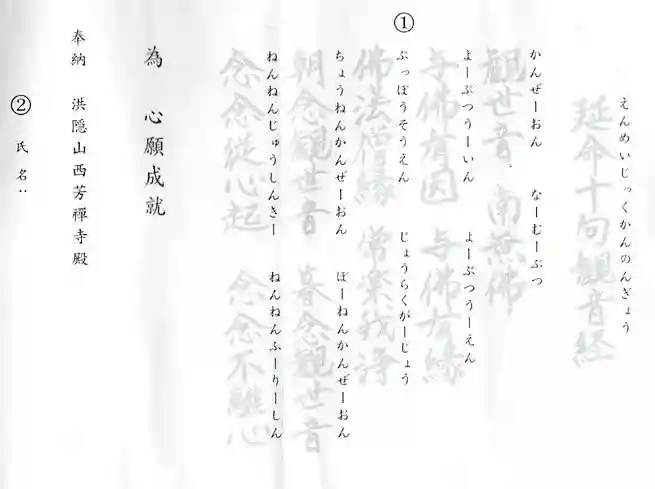 えんめいじっくかんのんぎょう
延命十句観音経
かんぜーおん　なーむーぶつ
観世音　南無佛
よーぶつうーいん　よーぶつうーえん
与佛有因　与佛有縁
①
ぶっぽうそうえん　じょうらくがーじょう
佛法僧縁　常楽我浄
ちょうねんかんぜーおん　ぼーねんかんぜーおん
朝念観世音　暮念観世音
ねんねんじゅうしんきー　ねんねんふーりーしん
念念從心起　念念不離心
為　心願成就
奉納　洪隠山西芳禪寺殿
② 氏名：